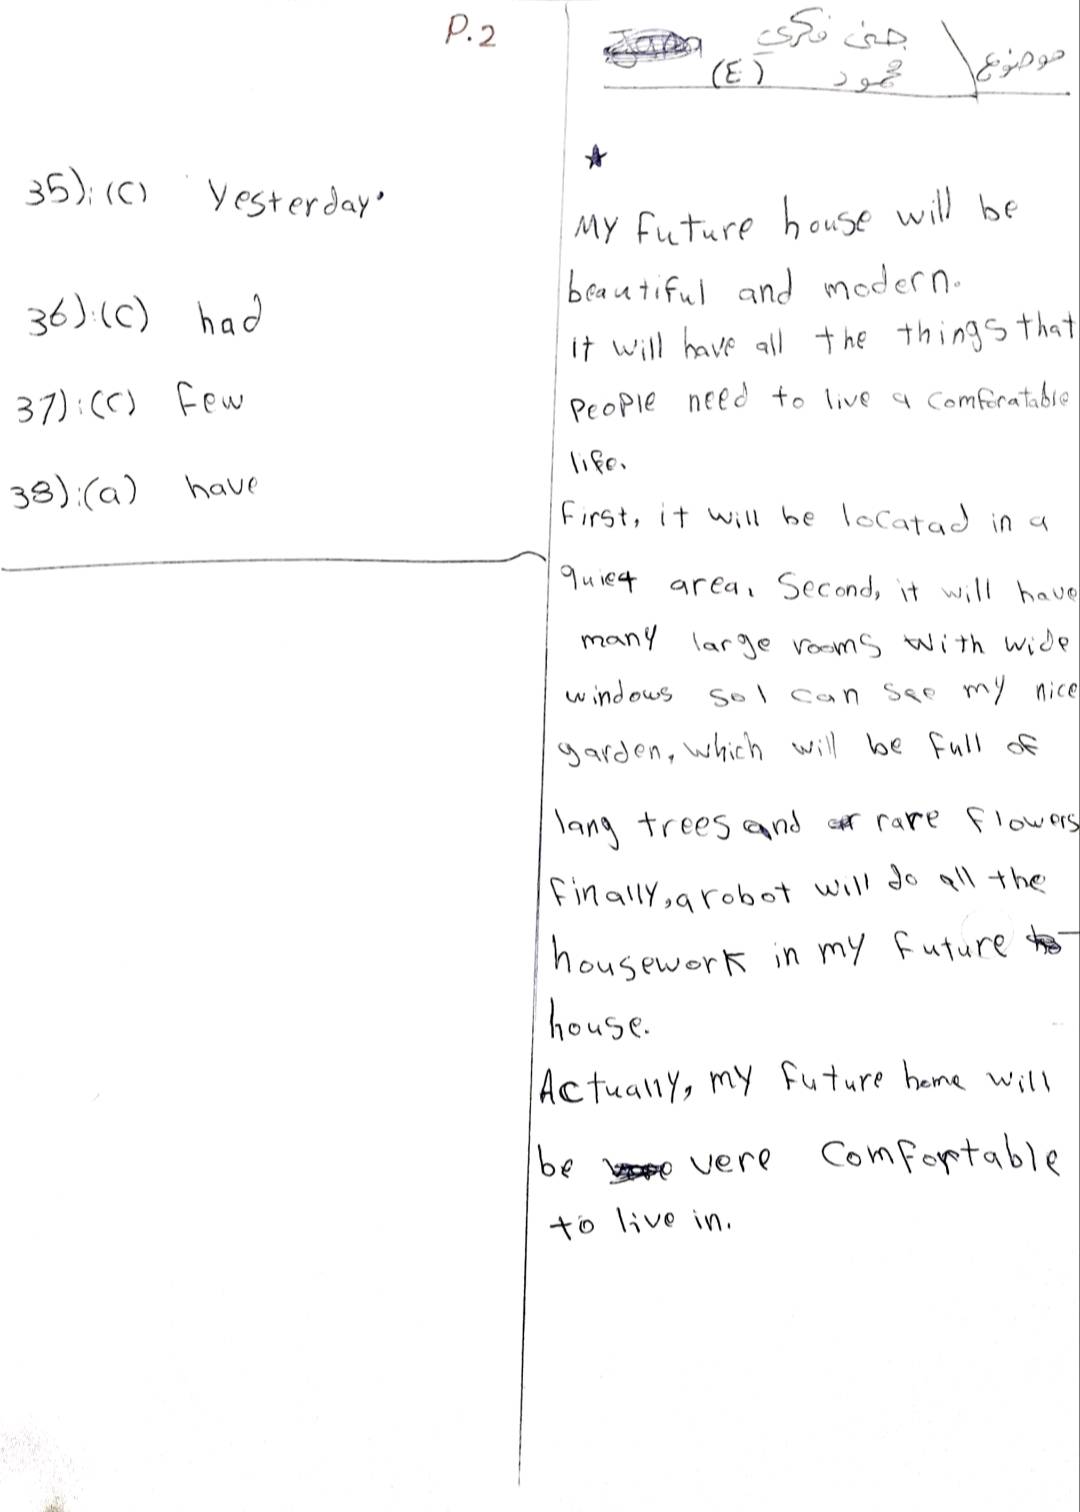 P.2
35):(C) Yesterday.
36):(C) had
37):(C) Few
38):(a) have
موضوع
جنى فكرى
محمود
(E)
My Future house will be
beautiful and modern.
it will have all the things that
People need to live a comforatable
life.
First, it will be locatad in a
quiet area. Second, it will have
many large rooms with wide
windows so I can see my nice
garden, which will be full of
lang trees and rare flowers
Finally, a robot will do all the
housework in my future
house.
Actually, my future home will
be vere Comfortable
to live in.